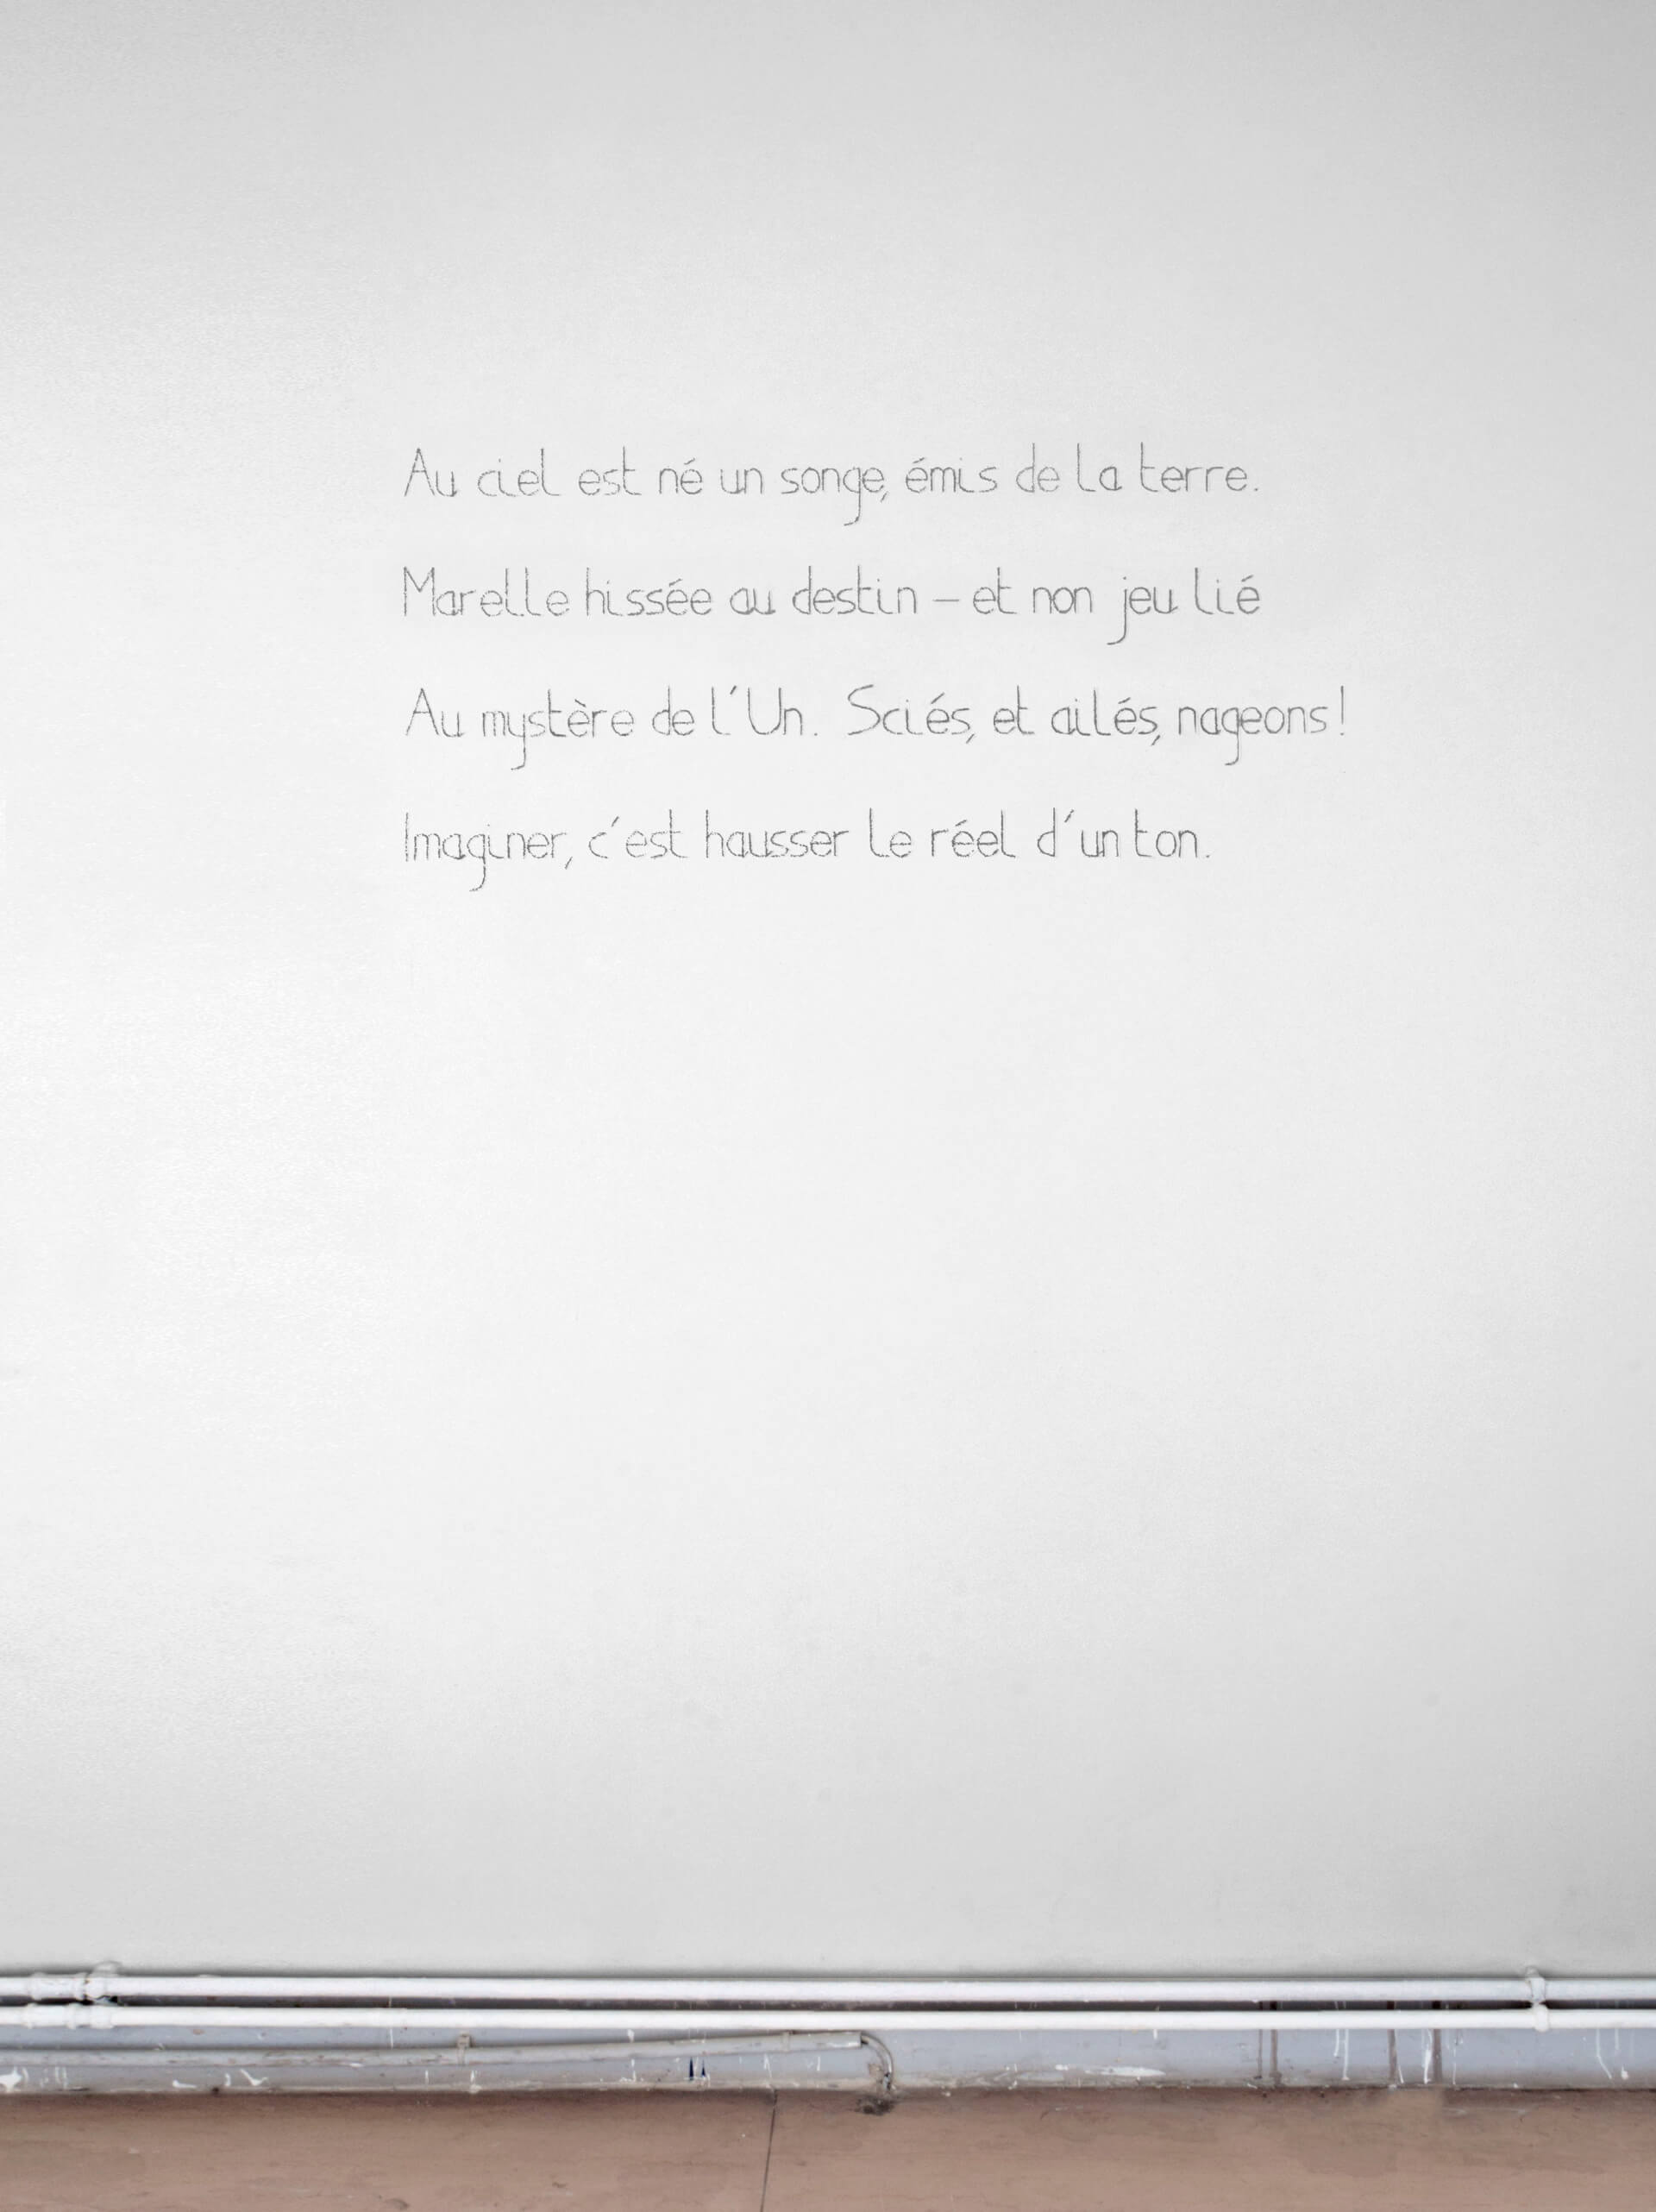 Au ciel est né un songe, émis de la terre.
Marelle hissée au destin – et non jeu lié
Au mystère de l'Un. Sciés, et ailés, nageons!
Imaginer, c'est hausser le réel d'un ton.